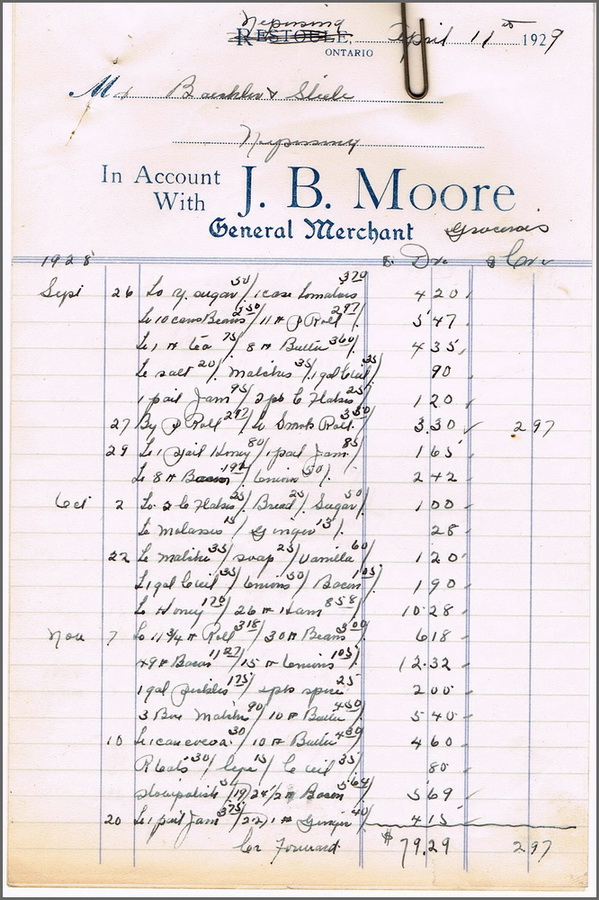 Nipissing
RESTOULE,
ONTARIO
April 11th 1929
M
Nipissing
In Account With J. B. Moore
General Merchant Groceries
1928 $ Dr. $ Cr.
Sept 26 To sugar 50/ 1 case tomatoes 370/ 4 20
To 10 cans Beans 250/ 11 # P Roll 297/ 5 47
To 1 # tea 75/ 8 # Butter 360/ 4 35
To salt 20/ Matches 35/ 1 gal C oil 35/ 90
1 pail Jam 95/ 2 pk C Flakes 25/ 1 20
27 By P Roll 297/ To Smok Roll 330/ 3.30 2 97
29 To 1 pail Honey 80/ 1 pail Jam 85/ 1 65
To 8 # Bacon 192/ Onions 50/ 2 42
Oct 2 To 2 C Flakes 25/ Bread 25/ Sugar 50/ 1 00
To Molasses 15/ Ginger 13/ 28
22 To Matches 35/ soap 25/ Vanilla 60/ 1 20
To 1 gal C oil 35/ Onions 50/ Bacon 105/ 1 90
To Honey 170/ 26 # Ham 858/ 10 28
Nov 7 To 11 3/4 # Roll 318/ 30 # Beans 300/ 6 18
49 # Bacon 1127/ 15 # Onions 105/ 12.32
1 gal pickles 175/ spice 25 2 00
3 Box Matches 90/ 10 # Butter 450/ 5 40
10 To 1 can cocoa 30/ 10 # Butter 430/ 4 60
R Oats 30/ 15/ C oil 35/ 80
stovepolish 5/ 24 1/2 # Bacon 564/ 5 69
20 To 1 pail Jam 375/ 1 # Ginger 40/ 4 15
Forward $79.29 2 97